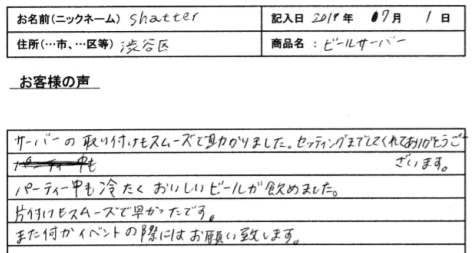 お名前(ニックネーム) shatter
記入日 2019年 07月 1日
住所(…市、…区等) 渋谷区
商品名:ビールサーバー
お客様の声
サーバーの取り付けもスムーズで助かりました。セッティングまでしてくれてありがとうご
ざいます。
パーティー中も冷たくおいしいビールが飲めました。
片付けもスムーズで早かったです。
また何かイベントの際にはお願い致します。